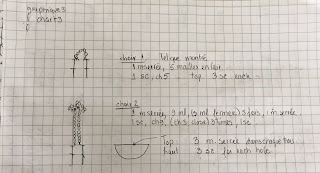 graphique 3
chart 3
f
chair 1 telque montré
1 mserrée, 5 mailles en l'air
1 sc, ch5 top 3 sc each
chair 2
1 m serrée, 9 ml, (3 ml fermée) 3 fois, 1 m serrée
1 sc, ch9, (ch3 close) 3 times, 1 sc
Top 3 m. serrée dans chaque trou
haut 3 sc for each hole